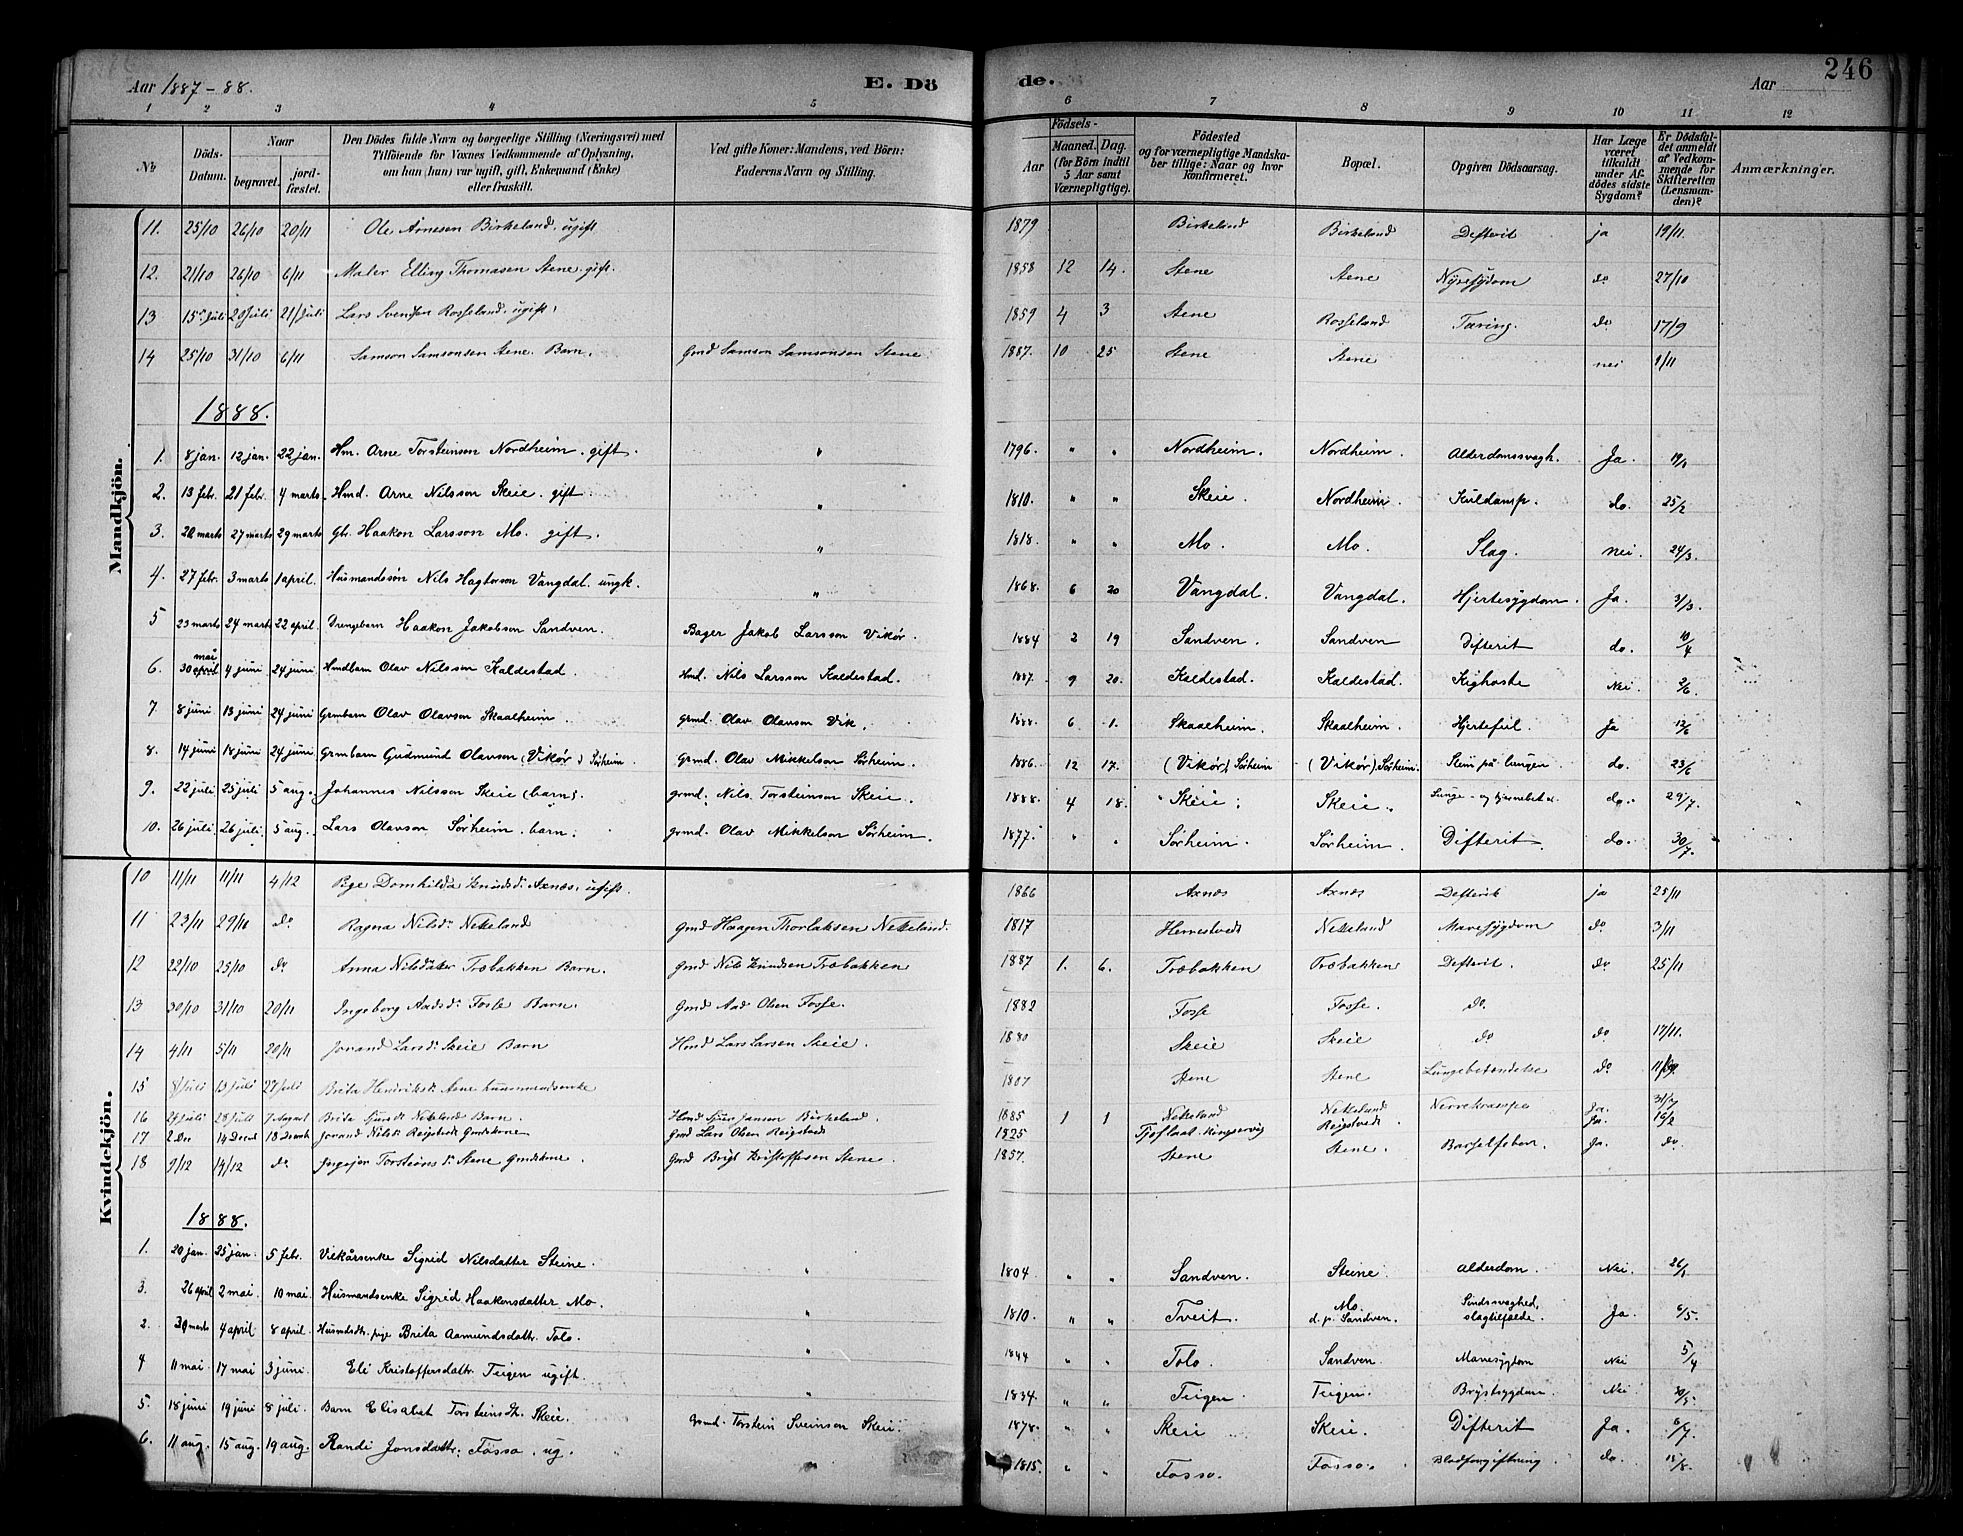 Aar 1887-88. E. Dö de. Aar 246
1 2 3 4 5 6 7 8 9 10 11 12
№ Döds-Datum. Naar begravet. jordfæstet. Den Dödes fulde Navn og borgerlige Stilling (Næringsvei) med Tilföiende for Voxnes Vedkommende af Oplysning, om han (hun) var ugift, gift, Enkemand (Enke) eller fraskilt. Ved gifte Koner: Mandens, ved Börn: Faderens Navn og Stilling. Födsels- Aar Maaned. Dag. (for Börn indtil 5 Aar samt Værnepligtige). Födested og for værnepligtige Mandskaber tillige: Naar og hvor konfirmeret. Bopæl. Opgiven Dödsaarsag. Har Læge været tilkaldt under Afdödes sidste Sygdom? Er Dödsfaldet anmeldt af Vedkommende for Skifteretten (Lensmanden)? Anmærkninger.
Mandkjön.
11. 25/10 26/10 20/11 Ole Arnesen Birkeland, ugift 1879 Birkeland Birkeland Defterit ja 19/11.
12. 21/10 26/10 6/11 Maler Elling Thomasen Stene, gift. 1858 12 14. Stene Stene Nyresygdom do 27/10
13 15 Juli 20 Juli 21 Juli Lars Svendsen Rosseland, ugift, 1859 4 3 Stene Rosseland Tæring. do 17/9
14 25/10 31/10 6/11 Samson Samsonsen Stene. Barn. Gmd Samson Samsonsen Stene 1887. 10 25 Stene Stene nei 1/11
1888.
1. 8 jan. 12 jan. 22 jan. Hm. Arne Torsteinson Nordheim. gift. " 1796. " " Nordheim. Nordheim. Alderdomssvagh. Ja. 19/1
2. 13 febr. 21 febr. 4 marts Hmd. Arne Nilsson Skeie. gift. " 1810. " " Skeie. Nordheim. Kuldamp. do. 25/2
3. 20 marts 27 marts 29 marts Gbr. Haakon Larsson Mo. gift. " 1818. " " Mo. Mo. Slag. nei. 24/3.
4. 27 febr. 3 marts 1 april. Husmandssøn Nils Hagtorson Vangdal. ungk. " 1868. 6 20 Vangdal. Vangdal. Hjertesygdom. Ja. 3/3.
5 23 marts 24 marts 22 april. Drengebarn Haakon Jakobson Sandven. Bager Jakob Larsson Vikør. 1884 2 19 Sandven. Sandven Difterit do. 10/4
6. 30 april mai 4 juni 24 juni Hmdbarn Olav Nilsson Kaldestad. Hmd. Nils Larsson Kaldestad. 1887. 9 20. Kaldestad. Kaldestad. Kighoste Nei 2/6
7 8 juni 13 juni 24 juni Grmbarn Olav Olavson Skaalheim. grmd. Olav Olavson Vik. 1888. 6 1. Skaalheim. Skaalheim. Hjertefeil. Ja 13/6
8. 14 juni 18 juni 24 juni Grmbarn Gudmund Olavson (Vikør) Sørheim. grmd. Olav Mikkelson Sørheim. 1886. 12 17. (Vikør) Sørheim (Vikør) Sørheim. Slim på lungen do. 23/6
9. 22 juli 25 juli 5 aug. Johannes Nilsson Skeie (barn). grmd. Nils Torsteinson Skeie. 1888. 4 18. Skeie. Skeie. Lunge- og hjernebet. do. 29/7.
10. 26 juli. 26 juli. 5 aug. Lars Olavson Sørheim. barn. grmd. Olav Mikkelson Sørheim. 1877. " " Sørheim. Sørheim. Difterit. do. 30/7.
Kvindekjön.
10 11/11 11/11 4/12 Pige Domhilda Knudsd: Axnæs, ugift. 1866 Axnæs Axnæs Defterit ja 25/11
11 23/11 29/10 do Ragna Nilsd: Netteland Gmd Haagen Thorlaksen Netteland. 1817 Herrestveds Netteland Mavesygdom do 3/11
12 22/10 25/10 do Anna Nilsdatter Træbakken Barn. Gmd Nils Knudsen Træbakken 1887 1. 6. Træbakken Træbakken Defterit. do 25/11
13 30/10 31/10 20/11 Ingeborg Aadsd: Fosse Barn. Gmd Aad Olsen Fosse. 1882 Fosse Fosse. do.
14 4/11 5/11 20/11 Jorand Larsd: Skeie Barn Hmd Lars Larsen Skeie. 1880 Skeie Skeie do do 17/11.
15 8 Juli 13 Juli 27 Juli Brita Henriksd: Stene huusmandsenke 1807 Stene Stene Lungebetændelse do
16 25 Juli 28 Juli 7 August Brita Sjursd: Netteland Barn. Hmd Sjur Jansen Birkeland. 1885 1 1 Netteland Netteland Nervekrampe Ja. 31/7
17 2 Dec 14 Decemb 18 Decemb Jorand Nilsd: Reigstveds Gmdskone Gmd Lars Olsen Reigstveds 1825 Kingservig Reigstveds. Ja.
18 9/12 14/12 do Ingejer Torsteins d: Stene Gmdskone. Gmd Brigt Kristoffersen Stene. 1857. Stene Stene. Barselfeber. Ja. do.
1888.
1. 20 jan. 25 jan. 5 febr. Vilkårsenke Sigrid Nilsdatter Steine. " 1804. " " Sandven. Steine. Alderdom. Nei. 26/1
3. 26 april 2 mai. 10 mai. Husmandsenke Sigrid Haakonsdatter Mo. " 1810. " " Tveit. Mo d.p. Sandven. Sindssvaghed, slagtilfælde. Ja. 6/5.
2. 30 marts 4 april 8 april. Husmdsdtr. pige Brita Aamundsdattr. Tolo. " 1844 " " Tolo. Sandven. Mavesygdom Nei 5/4
4 11 mai. 17 mai 3 juni Eli Kristoffersdattr. Teigen ugift. " 1834. " " Teigen. Teigen. Brystsygdom. Nei. 30/5.
5. 18 juni 19 juni 8 juli. Barn Elisabet Torsteinsdtr. Skeie. Grmd. Torstein Sveinson Skeie. 1878. " " Skeie Skeie. Difterit Ja. 6/7
6. 11 aug. 15 aug. 19 aug. Randi Jonsdattr: Fosso. ug. 1815. " " Fosso. Fosso. Blodforgiftning do. 15/8.